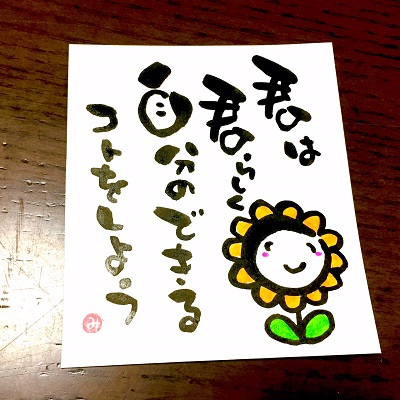 君は
君らしく
自分のできる
コトをしよう
み